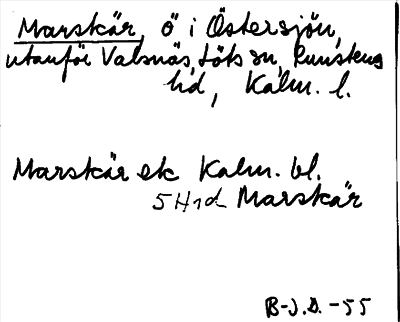 Marskär, ö i Östersjön,
utanför Valsnäs, Löts sn, Runstens
hd, Kalm. l.
Marskär ek Kalm. bl.
5 H 1d Marskär
B-J.D. -55